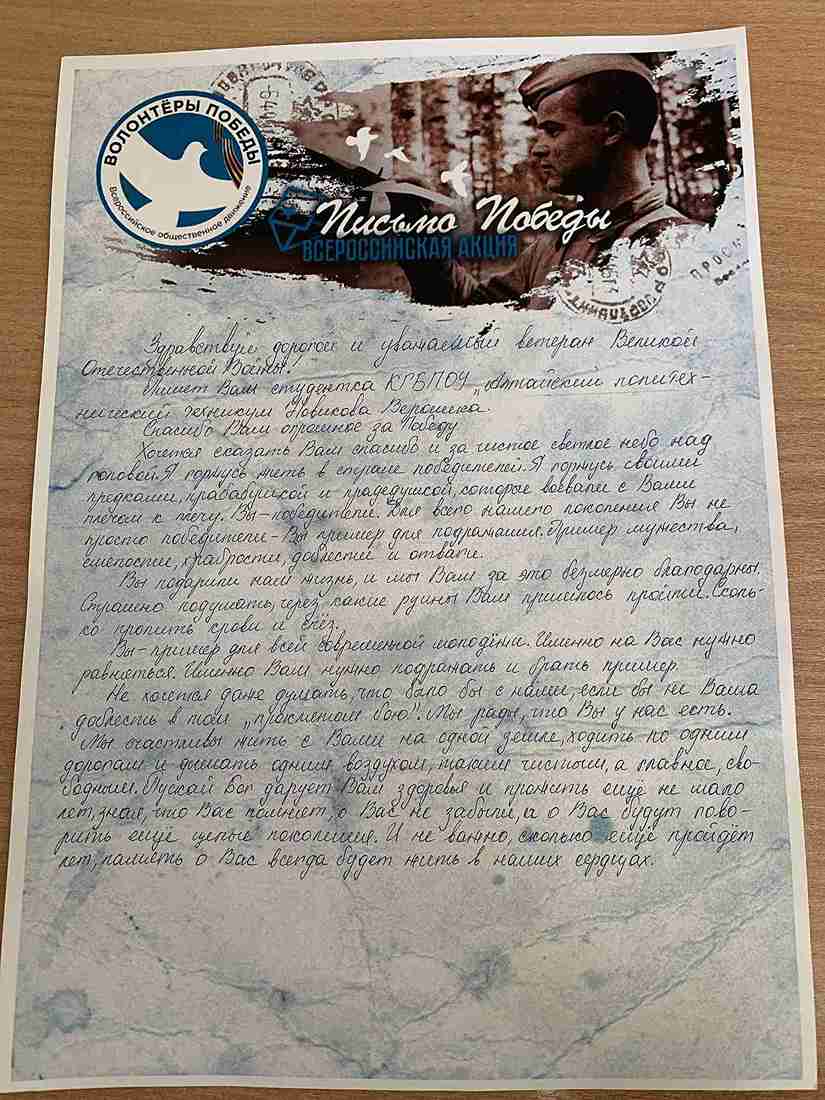 ВОЛОНТЁРЫ ПОБЕДЫ
Всероссийское общественное движение
Письмо Победы
ВСЕРОССИЙСКАЯ АКЦИЯ
Здравствуй дорогой и уважаемый ветеран Великой
Отечественной Войны!
Пишет Вам студентка КГБПОУ „Алтайский политех-
нический техникум Новикова Вероника.
Спасибо Вам огромное за Победу
Хочется сказать Вам спасибо и за чистое светлое небо над
головой. Я горжусь жить в стране победителей. Я горжусь своими
предками, прабабушкой и прадедушкой, которые воевали с Вами
плечом к плечу. Вы-победители. Для всего нашего поколения Вы не
просто победители-Вы пример для подражания. Пример мужества,
смелости, храбрости, доблести и отваги.
Вы подарили нам жизнь, и мы Вам за это безмерно благодарны.
Страшно подумать, через какие руины Вам пришлось пройти. Сколь-
ко пролить крови и слёз.
Вы-пример для всей современной молодёжи. Именно на Вас нужно
равняться. Именно Вам нужно подражать и брать пример.
Не хочется даже думать, что было бы с нами, если бы не Ваша
доблесть в том „ бою". Мы рады, что Вы у нас есть.
Мы счастливы жить с Вами на одной земле, ходить по одним
дорогам и дышать одним воздухом, таким чистым, а главное, сво-
бодным. Пускай Бог дарует Вам здоровья и прожить ещё не мало
лет, зная, что Вас помнят, о Вас не забыли, а о Вас будут гово-
рить ещё целые поколения. И не важно, сколько ещё пройдёт
лет, память о Вас всегда будет жить в наших сердцах.